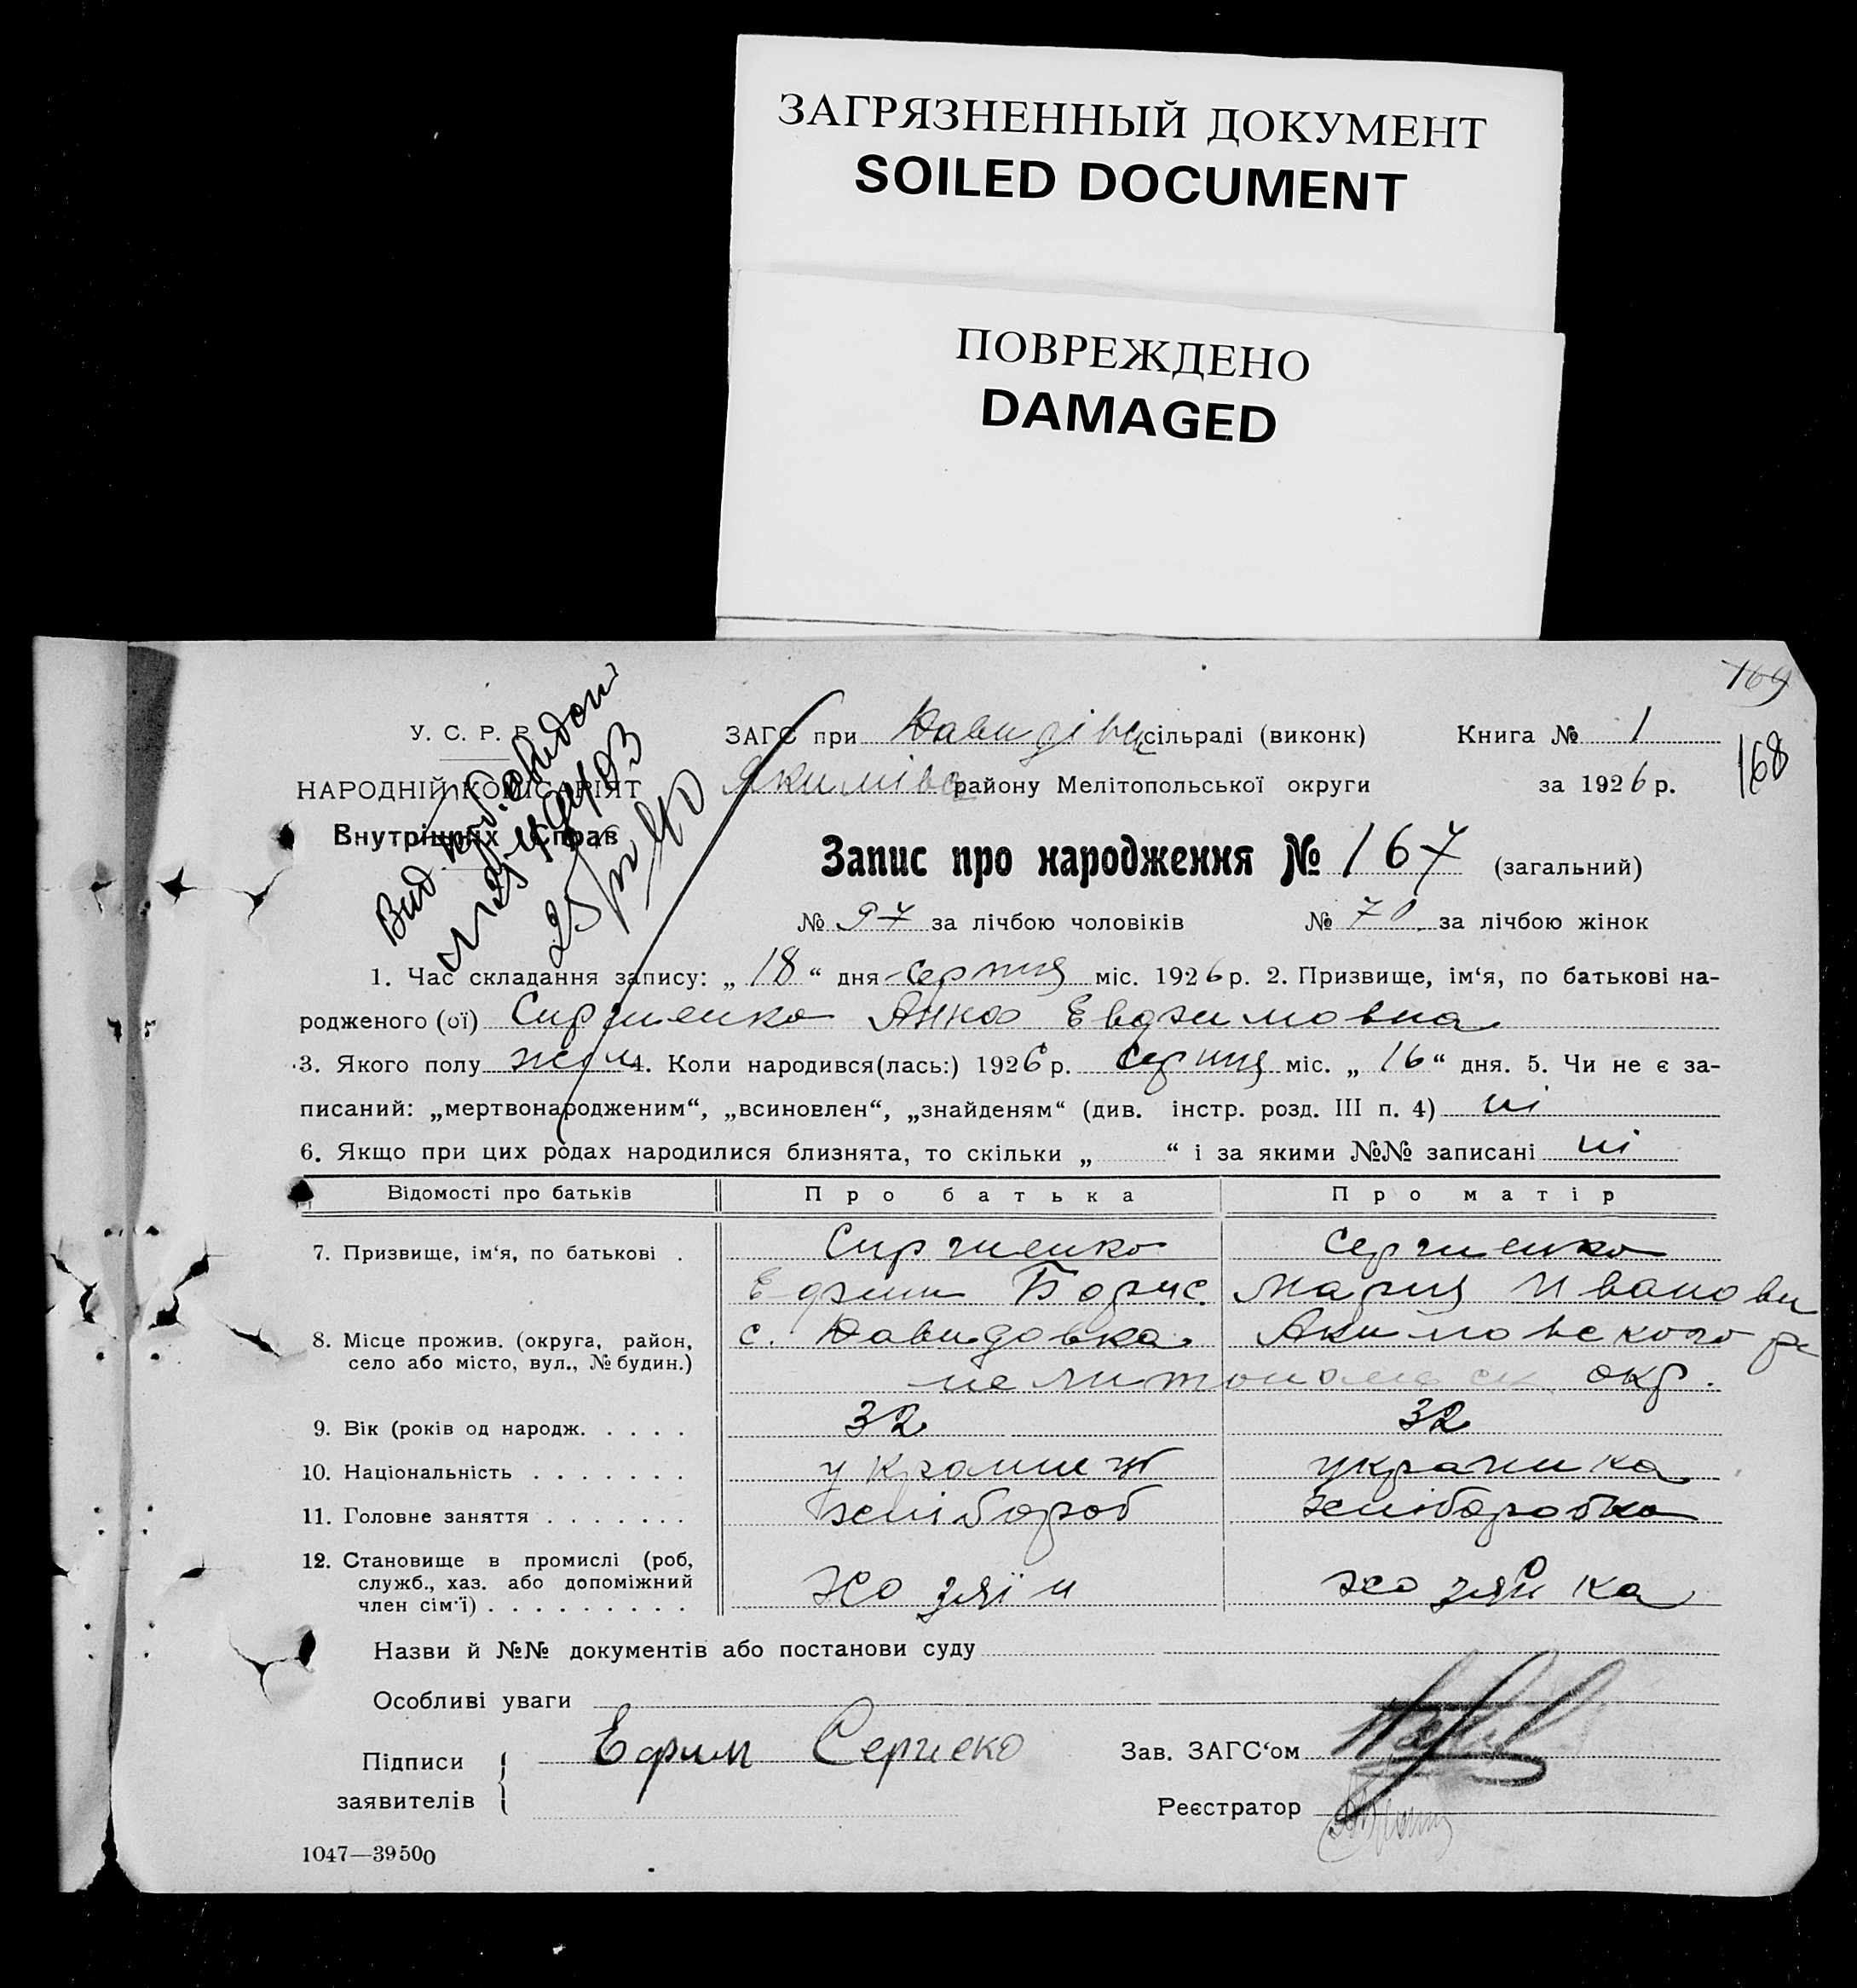 ЗАГРЯЗНЕННЫЙ ДОКУМЕНТ
SOILED DOCUMENT
ПОВРЕЖДЕНО
DAMAGED
169
168
У. С. Р. Р.
НАРОДНІЙ КОМІСАРІЯТ
Внутрішніх Справ
Вид
ЗАГС при Давидівц сільраді (виконк) Книга № 1
Якимівс району Мелітопольської округи за 1926 р.
Запис про народження № 167 (загальний)
№ 97 за лічбою чоловіків № 70 за лічбою жінок
1. Час складання запису: „ 18 “ дня серпня міс. 1926 р. 2. Призвище, ім‘я, по батькові на-
родженого (ої) Сиргиенко Анна Евдзимовна
3. Якого полу жен 4. Коли народився(лась:) 1926 р. Серпня міс. „ 16 “ дня. 5. Чи не є за-
писаний: „мертвонародженим“, „всиновлен“, „знайденям“ (див. інстр. розд. III п. 4) ні
6. Якщо при цих родах народилися близнята, то скільки „ “ і за якими №№ записані ні
Відомості про батьків Про батька Про матір
7. Призвище, ім‘я, по батькові . Сиргиенко Сергиенко
Ефим Борис. Мария Иванови
8. Місце прожив. (округа, район, с. Давидовка Акимовского р
село або місто, вул., № будин.)
мелитопольск окр.
9. Вік (років од народж. . . . . 32 32
10. Національність . . . . . . . украинец украинка
11. Головне заняття . . . . . . . хлібороб хліборобка
12. Становище в промислі (роб,
служб., хаз. або допоміжний хозяїн хозяйка
член сім‘ї) . . . . . . . . .
Назви й №№ документів або постанови суду
Особливі уваги
Підписи Ефим Сергиеко Зав. ЗАГС‘ом
заявителів Реєстратор
1047—39500